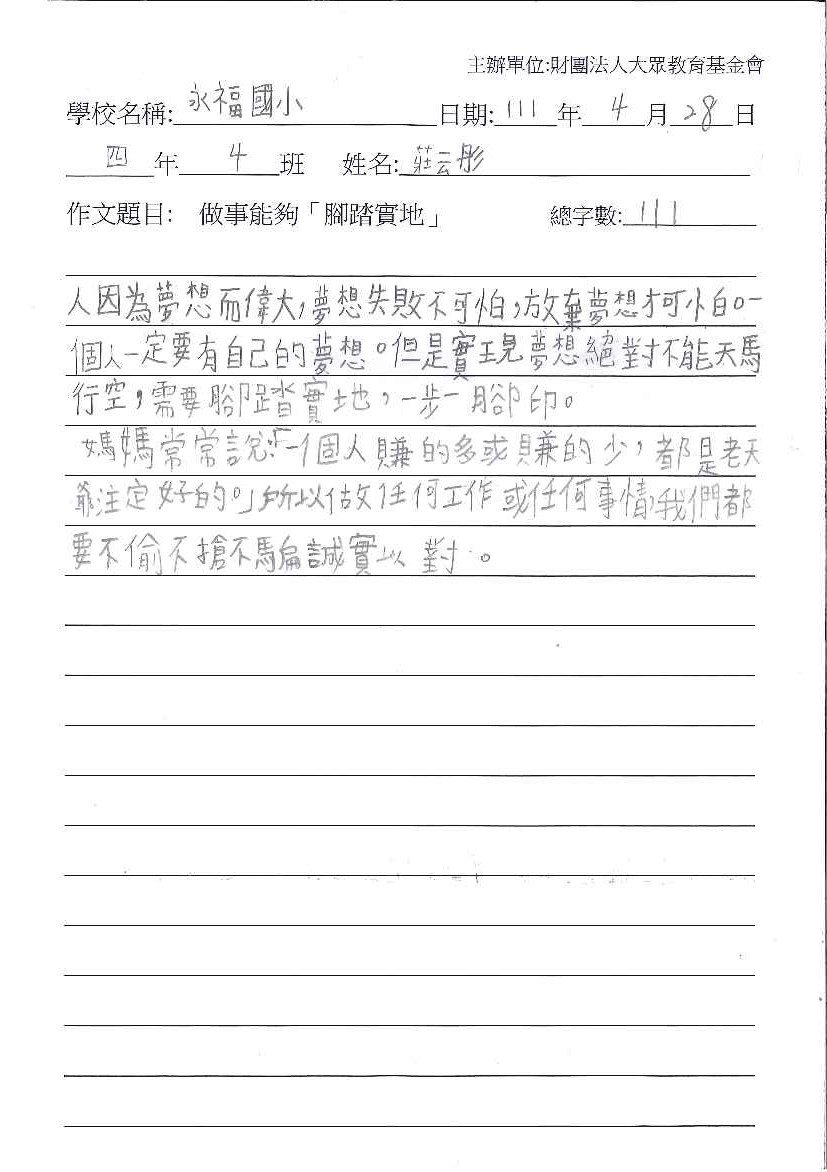 主辦單位:財團法人大眾教育基金會
學校名稱: 永福國小 日期: 111 年 4 月 28 日
四 年 4 班 姓名: 莊云彤
作文題目: 做事能夠「腳踏實地」 總字數: 111
人因為夢想而偉大,夢想失敗不可怕,放棄夢想才可怕。一
個人一定要有自己的夢想。但是實現夢想絕對不能天馬
行空,需要腳踏實地,一步一腳印。
媽媽常常說:「一個人賺的多或賺的少,都是老天
爺注定好的。」所以做任何工作或任何事情,我們都
要不偷不搶不騙誠實以對。